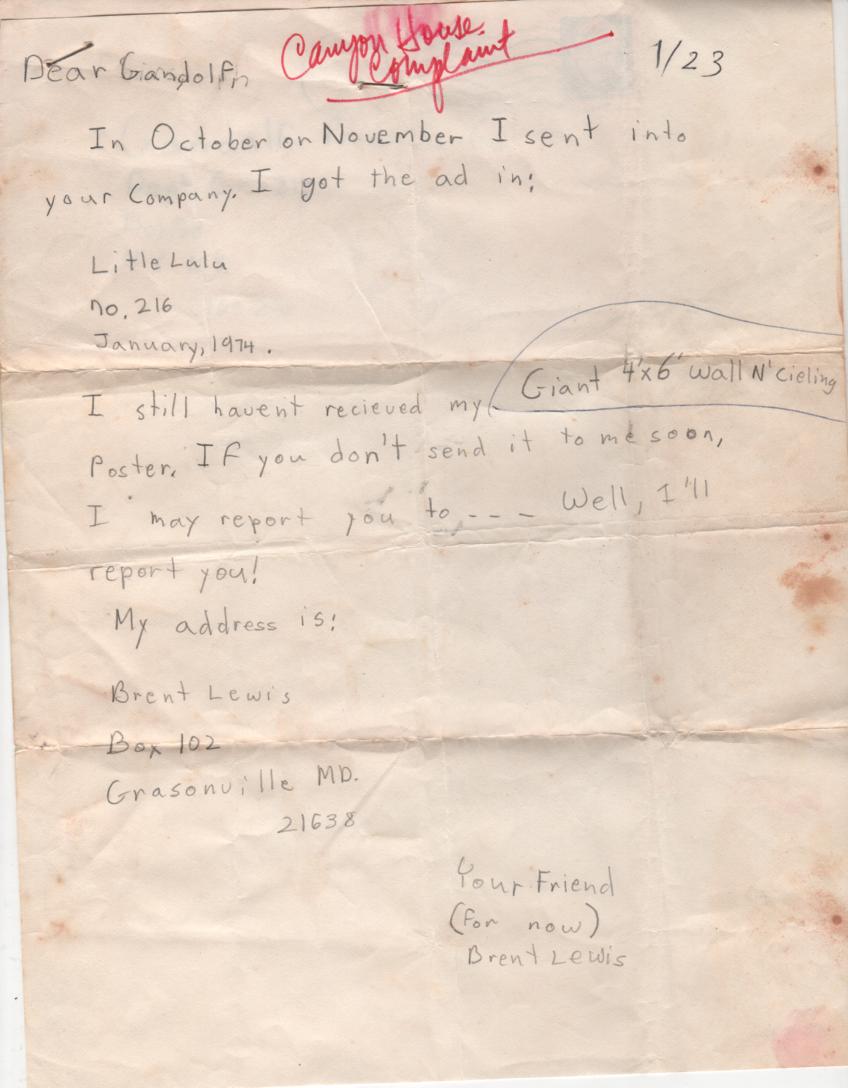 Canyon House
Complaint
1/23
Dear Gandolfn
In October or November I sent into
your Company. I got the ad in:
Litle Lulu
no. 216
January, 1974.
I still havent recieved my Giant 4'x6' Wall N' Cieling
Poster. If you don't send it to me soon,
I may report you to --- Well, I'll
report you!
My address is:
Brent Lewis
Box 102
Grasonville MD.
21638
Your Friend
(for now)
Brent Lewis